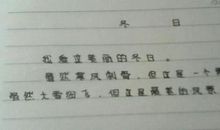 冬 日
我看这美丽的冬日。
虽然寒风刺骨,但这是一个
虽然大雪纷飞,但这是最美的风景